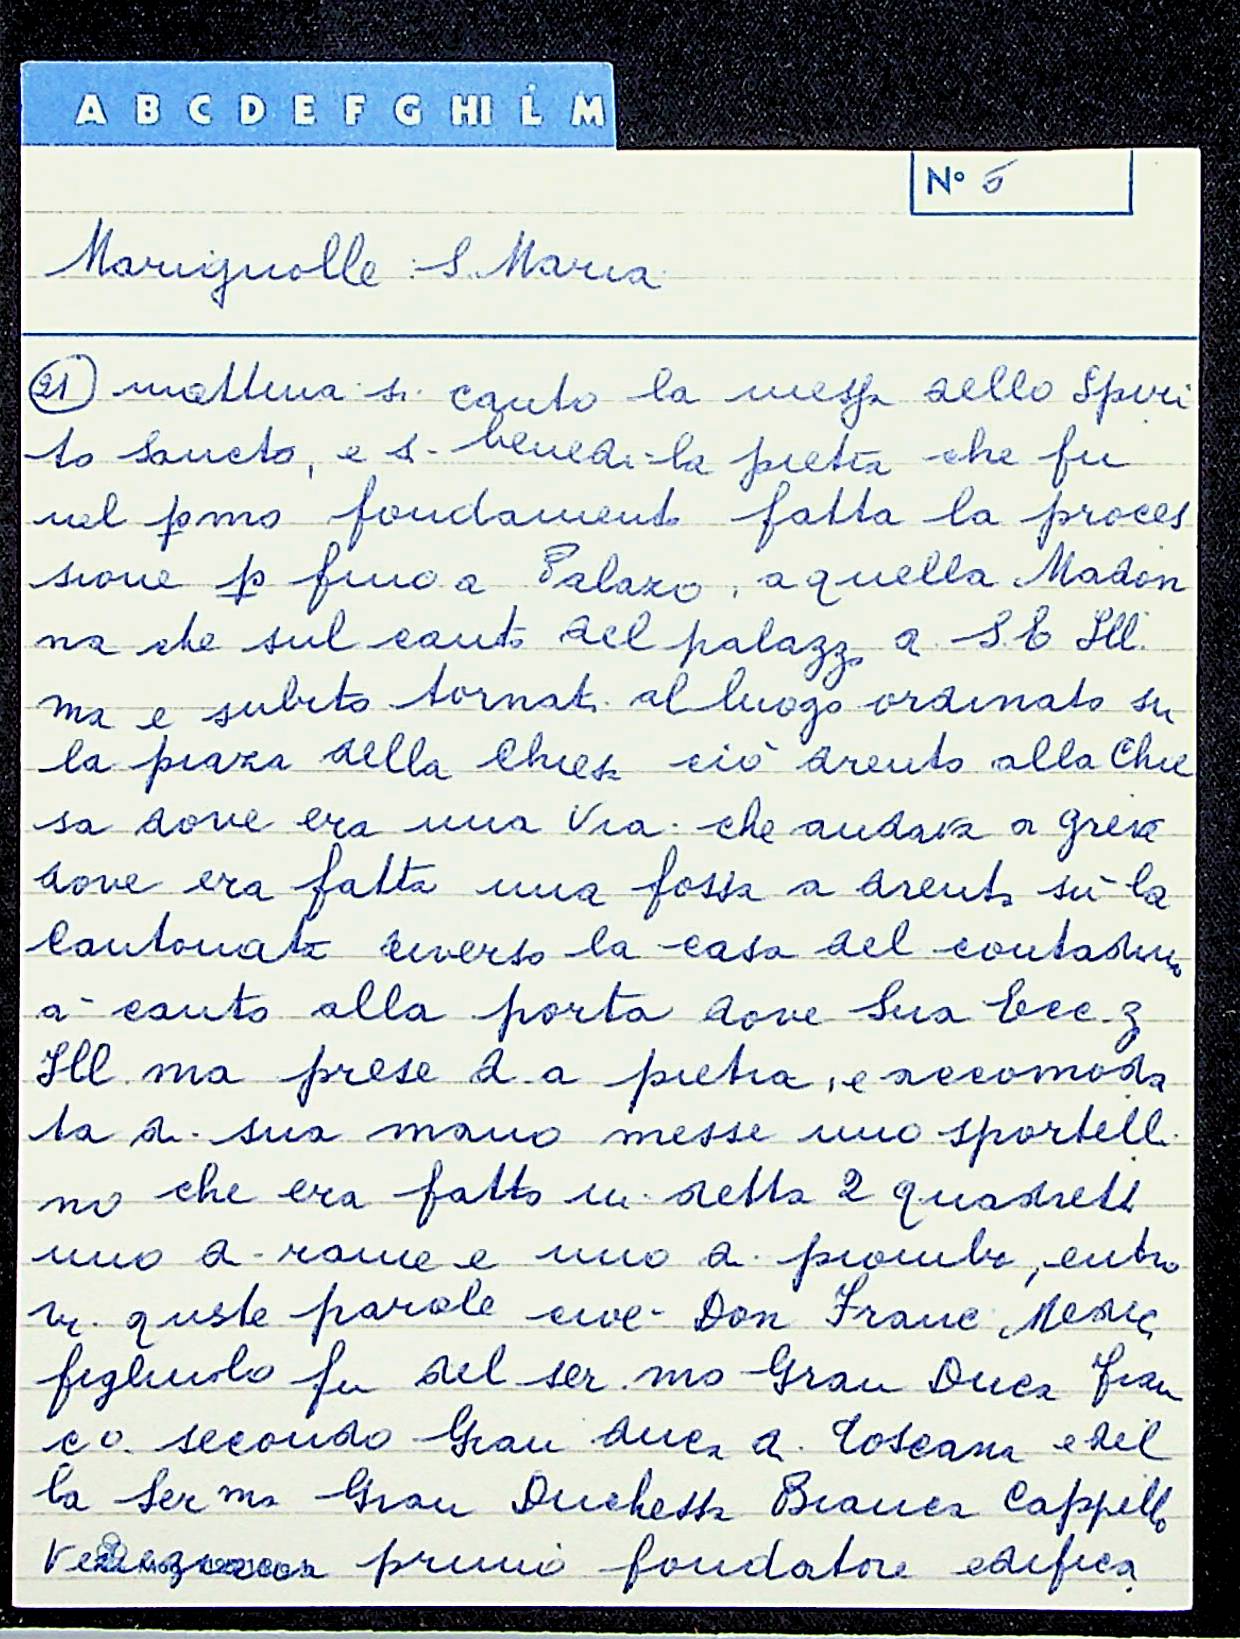 A B C D E F G HI L M
N° 5
Marignolle : S. Maria
(21) mattina si canto la messa dello Spiri
to Sancto, e si benedi la pietra che fu
nel pmo fondamento fatta la proces
sione p fino a Palazo, a quella Madon
na che sul canto del palazzo a S. E Ill.
ma e subito tornati al luogo ordinato su
la piaza della Chiesa ciò drento alla Chie
sa dove era una Via che andava a Greve
dove era fatta una fossa a drento sù la
Cantonata inverso la casa del contadino
a canto alla porta dove Sua Ecc. z
Ill. ma prese d. a pietra, e accomoda
ta di sua mano messe uno sportelli
no che era fatto in detta 2 quadretti
uno di rame e uno di piombo, entro
vi queste parole cioè Don Franc. Medic
figliuolo fu del ser. mo Gran Duca Fran
co. secondo Gran duca d. Toscana e del
la Ser ma Gran Duchessa Bianca Cappello
Veneziana primo fondatore edifica